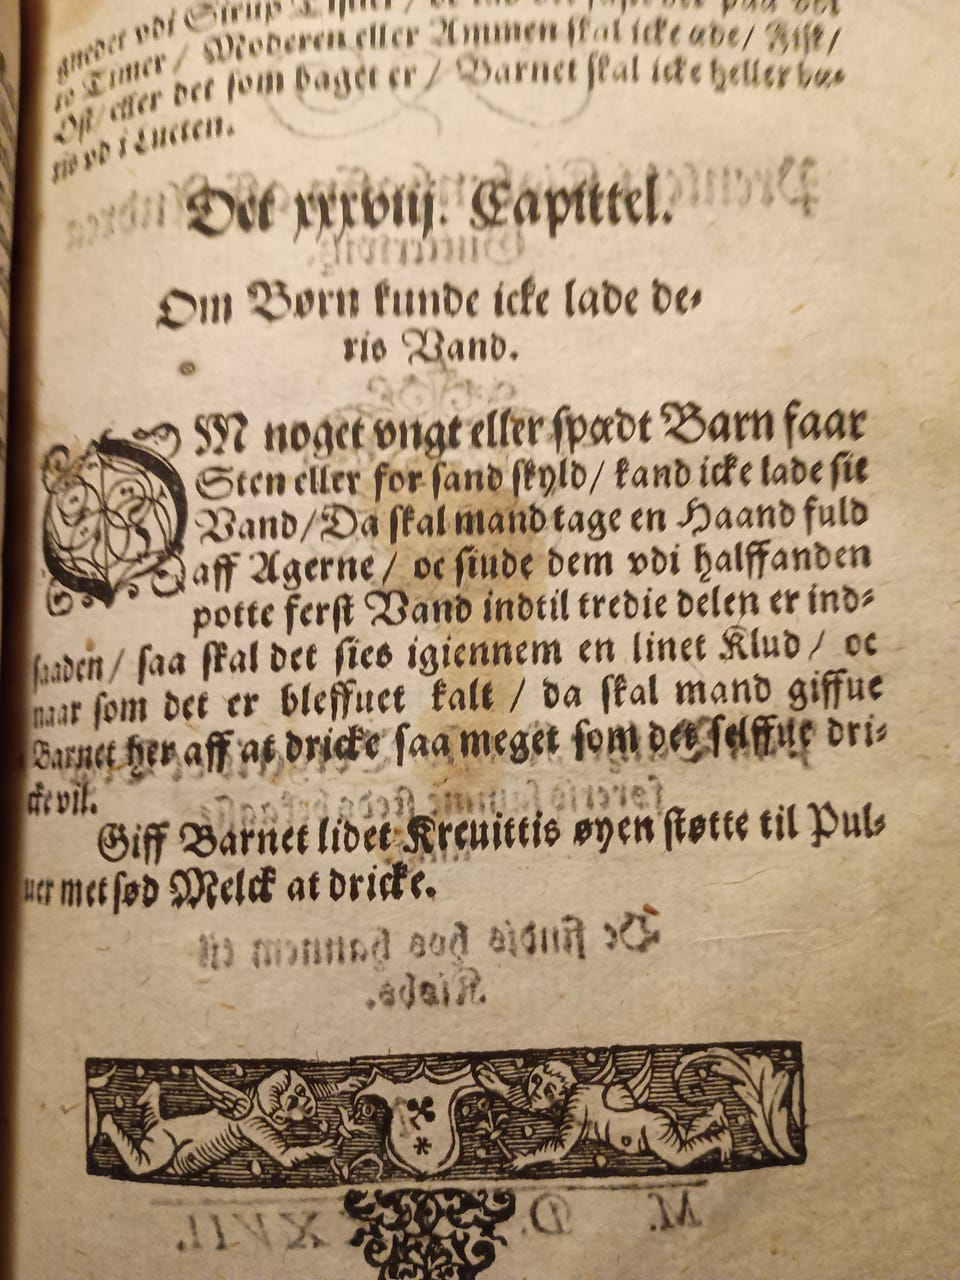 gnedet vdi Sirup
to Timer / Moderen eller Ammen skal icke æde / Fisk /
Ost / eller det som baget er / Barnet skal icke heller bæ⸗
ris vd i Lucten.
Det xxxviij. Capittel.
Om Børn kunde icke lade de⸗
ris Vand.
OM noget vngt eller spædt Barn faar
Sten eller for sand skyld / kand icke lade sit
Vand / Da skal mand tage en Haand fuld
aff Agerne / oc siude dem vdi halffanden
potte ferst Vand indtil tredie delen er ind⸗
saaden / saa skal det sies igiennem en linet Klud / oc
naar som det er bleffuet kalt / da skal mand giffue
Barnet her aff at dricke saa meget som det selffue dri⸗
cke vil.
Giff Barnet lidet Kreuittis øyen støtte til Pul⸗
uer met sød Melck at dricke.